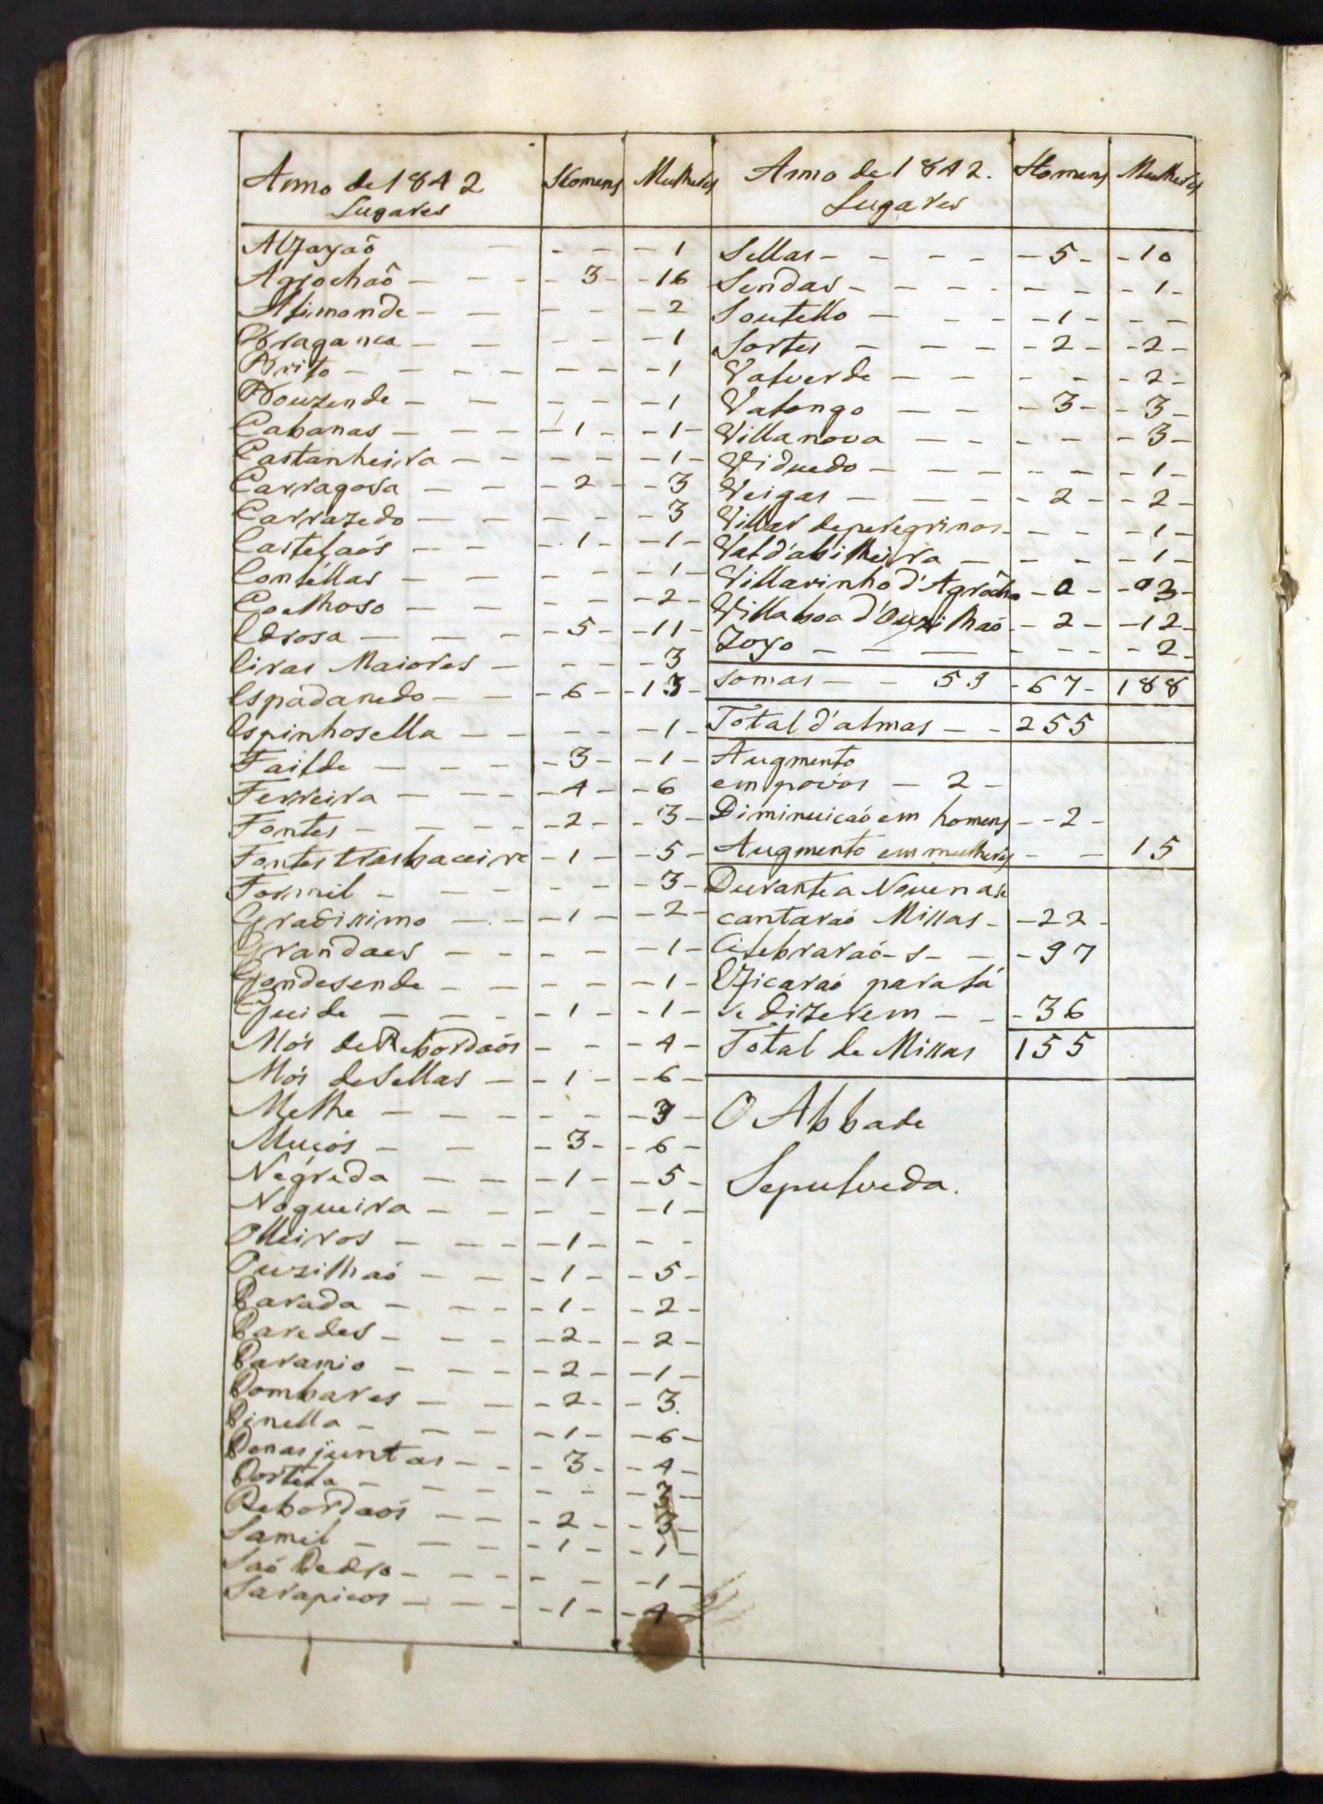 Anno de 1842 Homens Mulheres
Lugares
Alfayaõ - - - - 1
Agrochaõ - - - 3 - - 16
Alimonde - - - - - 2
Bragança - - - - - 1
Brito - - - - - - - 1
Bouzende - - - - - 1
Cabanas - - - - 1 - - 1 -
Castanheira - - - - - 1 -
Carragosa - - - 2 - - 3
Carrazedo - - - - - 3
Castelaós - - - 1 - - 1 -
Conlellas - - - - - 1 -
Coelhoso - - - - - 2 -
Edrosa - - - - 5 - - 11 -
Eiras Maiores - - - - 3
Espadanedo - - - 6 - - 13 -
Espinhosella - - - - - 1 -
Failde - - - - 3 - - 1 -
Ferreira - - - - 4 - - 6
Fontes - - - - 2 - - 3 -
Fontes trasbaceiro - 1 - - 5 -
Formil - - - - - 3 -
Gradissimo - - - 1 - - 2 -
Grandaes - - - - - 1 -
Gondesende - - - - - 1 -
Guide - - - - 1 - - 1 -
Mós de Rebordaós - - - 4 -
Mós de Sellas - - 1 - - 6 -
Melhe - - - - - 3 -
Muçós - - - 3 - - 6 -
Negreda - - - 1 - - 5 -
Nogueira - - - - - 1 -
Olleiros - - - - 1 - - -
Ouzilhaó - - - 1 - - 5 -
Parada - - - - 1 - - 2 -
Paredes - - - - 2 - - 2 -
Paramio - - - - 2 - - 1 -
Pombares - - - 2 - - 3.
Pinella - - - - 1 - - 6 -
Penas juntas - - - 3 - - 4 -
Portela - - - - - -
Rebordaós - - - 2 - - 3 -
Samil - - - - 1 - - 1 -
Saó Pedro - - - - - 1 -
Sarapicos - - - - 1 - - 4 -
Anno de 1842. Homens Mulheres
Lugares
Sellas - - - - - 5 - - 10
Sendas - - - - - - 1 -
Soutello - - - - 1 - - -
Sortes - - - - 2 - - 2 -
Valverde - - - - - 2 -
Valongo - - - 3 - - 3 -
Villa nova - - - - - 3 -
Viduedo - - - - - - 1 -
Veigas - - - - 2 - - 2 -
Villar de peregrinos - - - - 1 -
Val d'abilheira - - - - 1 -
Villarinho d'Agrôcho - 0 - - 03 -
Villa boa d'Ouzilhaó - 2 - - 12 -
Zoyo - - - - - - 2 -
Somas - - 59 - 67 - 188
Total d'almas - - 255
Augmento
em povos - 2 -
Diminuicaó em homens - - 2 -
Augmento em mulheres - - 15
Durante a Novena se
cantaraó Missas - - 22 -
Celebraraó-s - - - 97
E ficaraó para lá
se dizerem - - - 36
Total de Missas 155
O Abbade
Sepulveda.